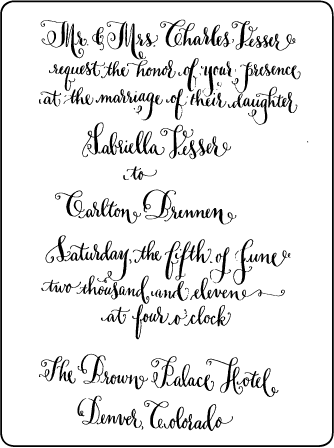 Mr. & Mrs. Charles Vesser
request the honor of your presence
at the marriage of their daughter
Gabriella Vesser
to
Carlton Brennen
Saturday, the fifth of June
two thousand and eleven
at four o'clock
The Brown Palace Hotel
Denver, Colorado